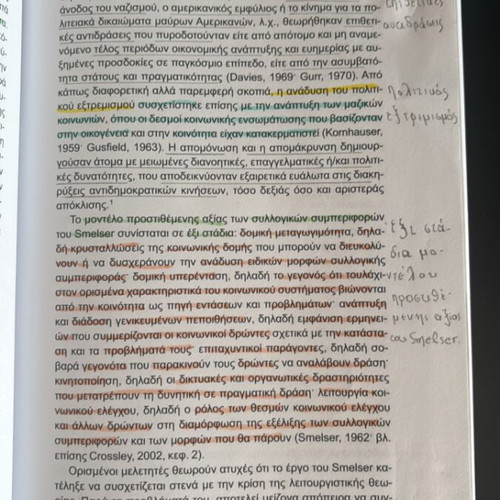 άνοδος του ναζισμού, ο αμερικανικός εμφύλιος ή το κίνημα για τα πο-
λιτειακά δικαιώματα μαύρων Αμερικανών, λ.χ., θεωρήθηκαν επιθετι-
κές αντιδράσεις που πυροδοτούνταν είτε από απότομο και μη αναμε-
νόμενο τέλος περιόδων οικονομικής ανάπτυξης και ευημερίας με αυ-
ξημένες προσδοκίες σε παγκόσμιο επίπεδο, είτε από την ασυμβατό-
τητα στάτους και πραγματικότητας (Davies, 1969· Gurr, 1970). Από
κάπως διαφορετική αλλά παρεμφερή σκοπιά, η ανάδυση του πολιτι-
κού εξτρεμισμού συσχετίστηκε επίσης με την ανάπτυξη των μαζικών
κοινωνιών, όπου οι δεσμοί κοινωνικής ενσωμάτωσης που βασίζονταν
στην οικογένεια και στην κοινότητα είχαν κατακερματιστεί (Kornhauser,
1959· Gusfield, 1963). Η απομόνωση και η απομάκρυνση δημιουρ-
γούσαν άτομα με μειωμένες διανοητικές, επαγγελματικές ή/και πολιτι-
κές δυνατότητες, που αποδεικνύονταν εξαιρετικά ευάλωτα στις διακη-
ρύξεις αντιδημοκρατικών κινήσεων, τόσο δεξιάς όσο και αριστεράς
απόκλισης.¹
Το μοντέλο προστιθέμενης αξίας των συλλογικών συμπεριφορών
του Smelser συνίσταται σε έξι στάδια: δομική μεταγωγιμότητα, δηλα-
δή κρυσταλλώσεις της κοινωνικής δομής που μπορούν να διευκολύ-
νουν ή να δυσχεράνουν την ανάδυση ειδικών μορφών συλλογικής
συμπεριφοράς· δομική υπερένταση, δηλαδή το γεγονός ότι τουλάχι-
στον ορισμένα χαρακτηριστικά του κοινωνικού συστήματος βιώνονται
από την κοινότητα ως πηγή εντάσεων και προβλημάτων· ανάπτυξη
και διάδοση γενικευμένων πεποιθήσεων, δηλαδή εμφάνιση ερμηνει-
ών που συμμερίζονται οι κοινωνικοί δρώντες σχετικά με την κατάστα-
ση και τα προβλήματά τους· επιταχυντικοί παράγοντες, δηλαδή σο-
βαρά γεγονότα που παρακινούν τους δρώντες να αναλάβουν δράση·
κινητοποίηση, δηλαδή οι δικτυακές και οργανωτικές δραστηριότητες
που μετατρέπουν τη δυνητική σε πραγματική δράση· λειτουργία κοι-
νωνικού ελέγχου, δηλαδή ο ρόλος των θεσμών κοινωνικού ελέγχου
και άλλων δρώντων στη διαμόρφωση της εξέλιξης των συλλογικών
συμπεριφορών και των μορφών που θα πάρουν (Smelser, 1962· βλ.
επίσης Crossley, 2002, κεφ. 2).
Ορισμένοι μελετητές θεωρούν ατυχές ότι το έργο του Smelser κα-
τέληξε να συσχετίζεται στενά με την κρίση της λειτουργιστικής θεω-
Πολιτικός
εξτρεμισμός
Έξι στά-
δια μο-
ντέλου
προστιθέ-
μενης αξίας
του Smelser.